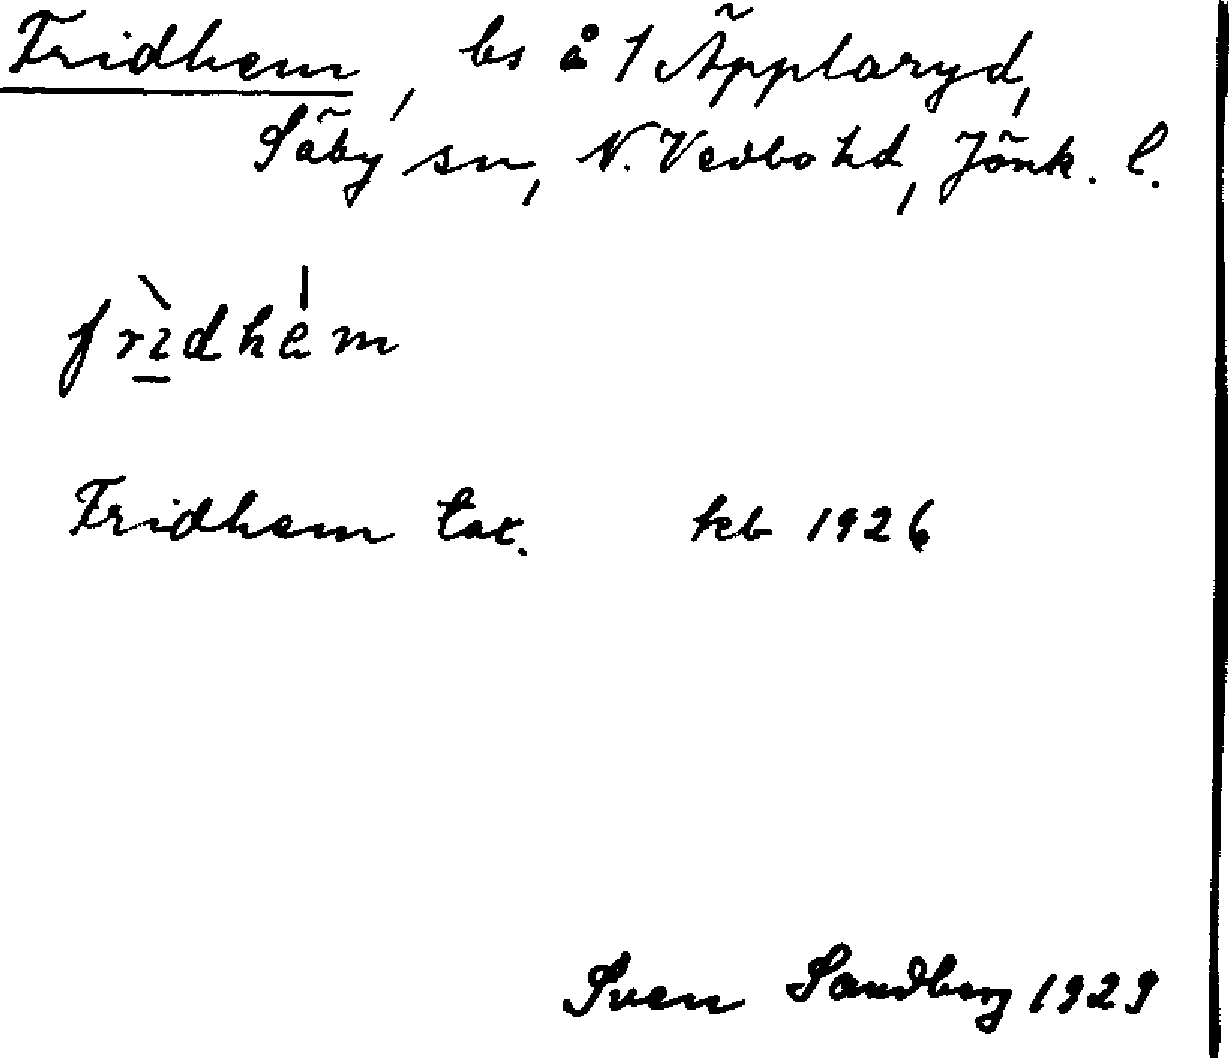 Fridhem, bs å 1 Äpplaryd,
Säby sn, N. Vedbo hd, Jönk. l.
frìdhém
Fridhem tax. kb 1926
Sven Sandberg 1929